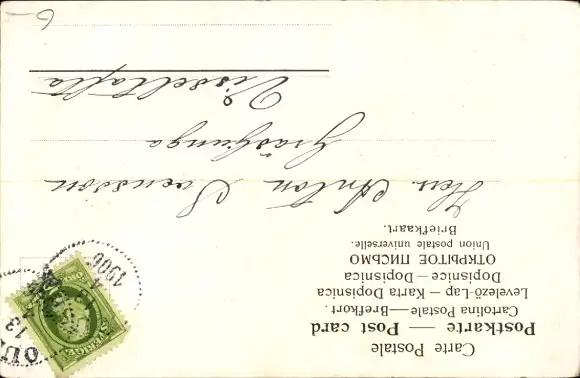 Carte Postale
Postkarte — Post card
Cartolina Postale — Brefkort.
Levelező-Lap — Karta Dopisnica
Dopisnice — Dopisnica
ОТКРЫТОЕ ПИСЬМО
Union postale universelle.
Briefkaart.
Herr Anton Svensson
Gräsljunga
Visseltofta
SVERIGE
13
1906
6-